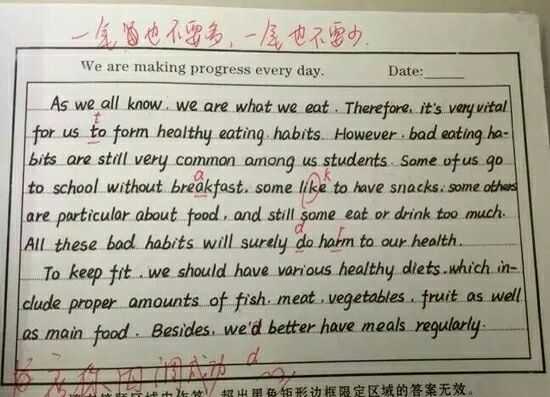 一笔也不要多，一笔也不要少.
We are making progress every day. Date:
As we all know, we are what we eat. Therefore, it's very vital
t
for us to form healthy eating habits. However, bad eating ha-
bits are still very common among us students. Some of us go
a k
to school without breakfast, some like to have snacks, some others
are particular about food, and still some eat or drink too much.
d r
All these bad habits will surely do harm to our health.
To keep fit, we should have various healthy diets, which in-
clude proper amounts of fish, meat, vegetables, fruit as well
as main food. Besides, we'd better have meals regularly.
d
超出黑色矩形边框限定区域的答案无效。